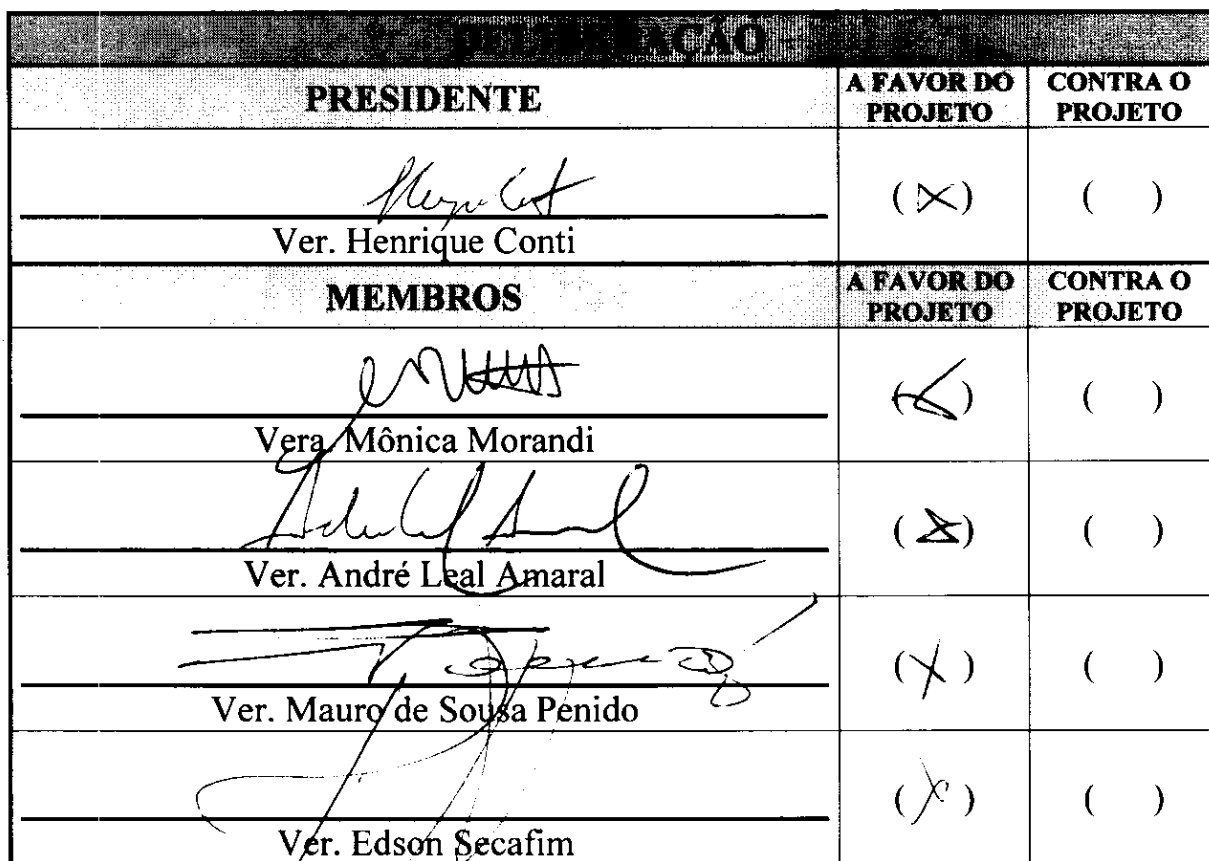 DELIBERAÇÃO
PRESIDENTE A FAVOR DO PROJETO CONTRA O PROJETO
(X) ( )
Ver. Henrique Conti
MEMBROS A FAVOR DO PROJETO CONTRA O PROJETO
(X) ( )
Vera. Mônica Morandi
(X) ( )
Ver. André Leal Amaral
(X) ( )
Ver. Mauro de Sousa Penido
(X) ( )
Ver. Edson Secafim